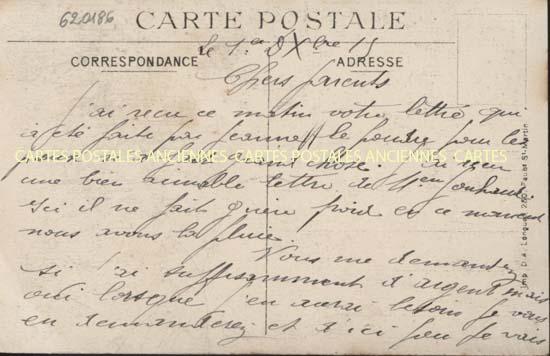 620186
CARTE POSTALE
Le 1er Xbre 15
CORRESPONDANCE ADRESSE
Chers parents
J'ai reçu ce matin votre lettre qui
a été faite par Jeanne, la poudre pour les
CARTES POSTALES ANCIENNES CARTES POSTALES ANCIENNES CARTES
une bien aimable lettre de
Ici il ne fait guère froid en ce moment
nous avons la pluie.
Vous me demandez
si j'ai suffisamment d'argent, mais
oui lorsque j'en aurai besoin je vous
en demanderez et d'ici peu je vais
Imp. D.A. Longuet 250 Faubg St-Martin